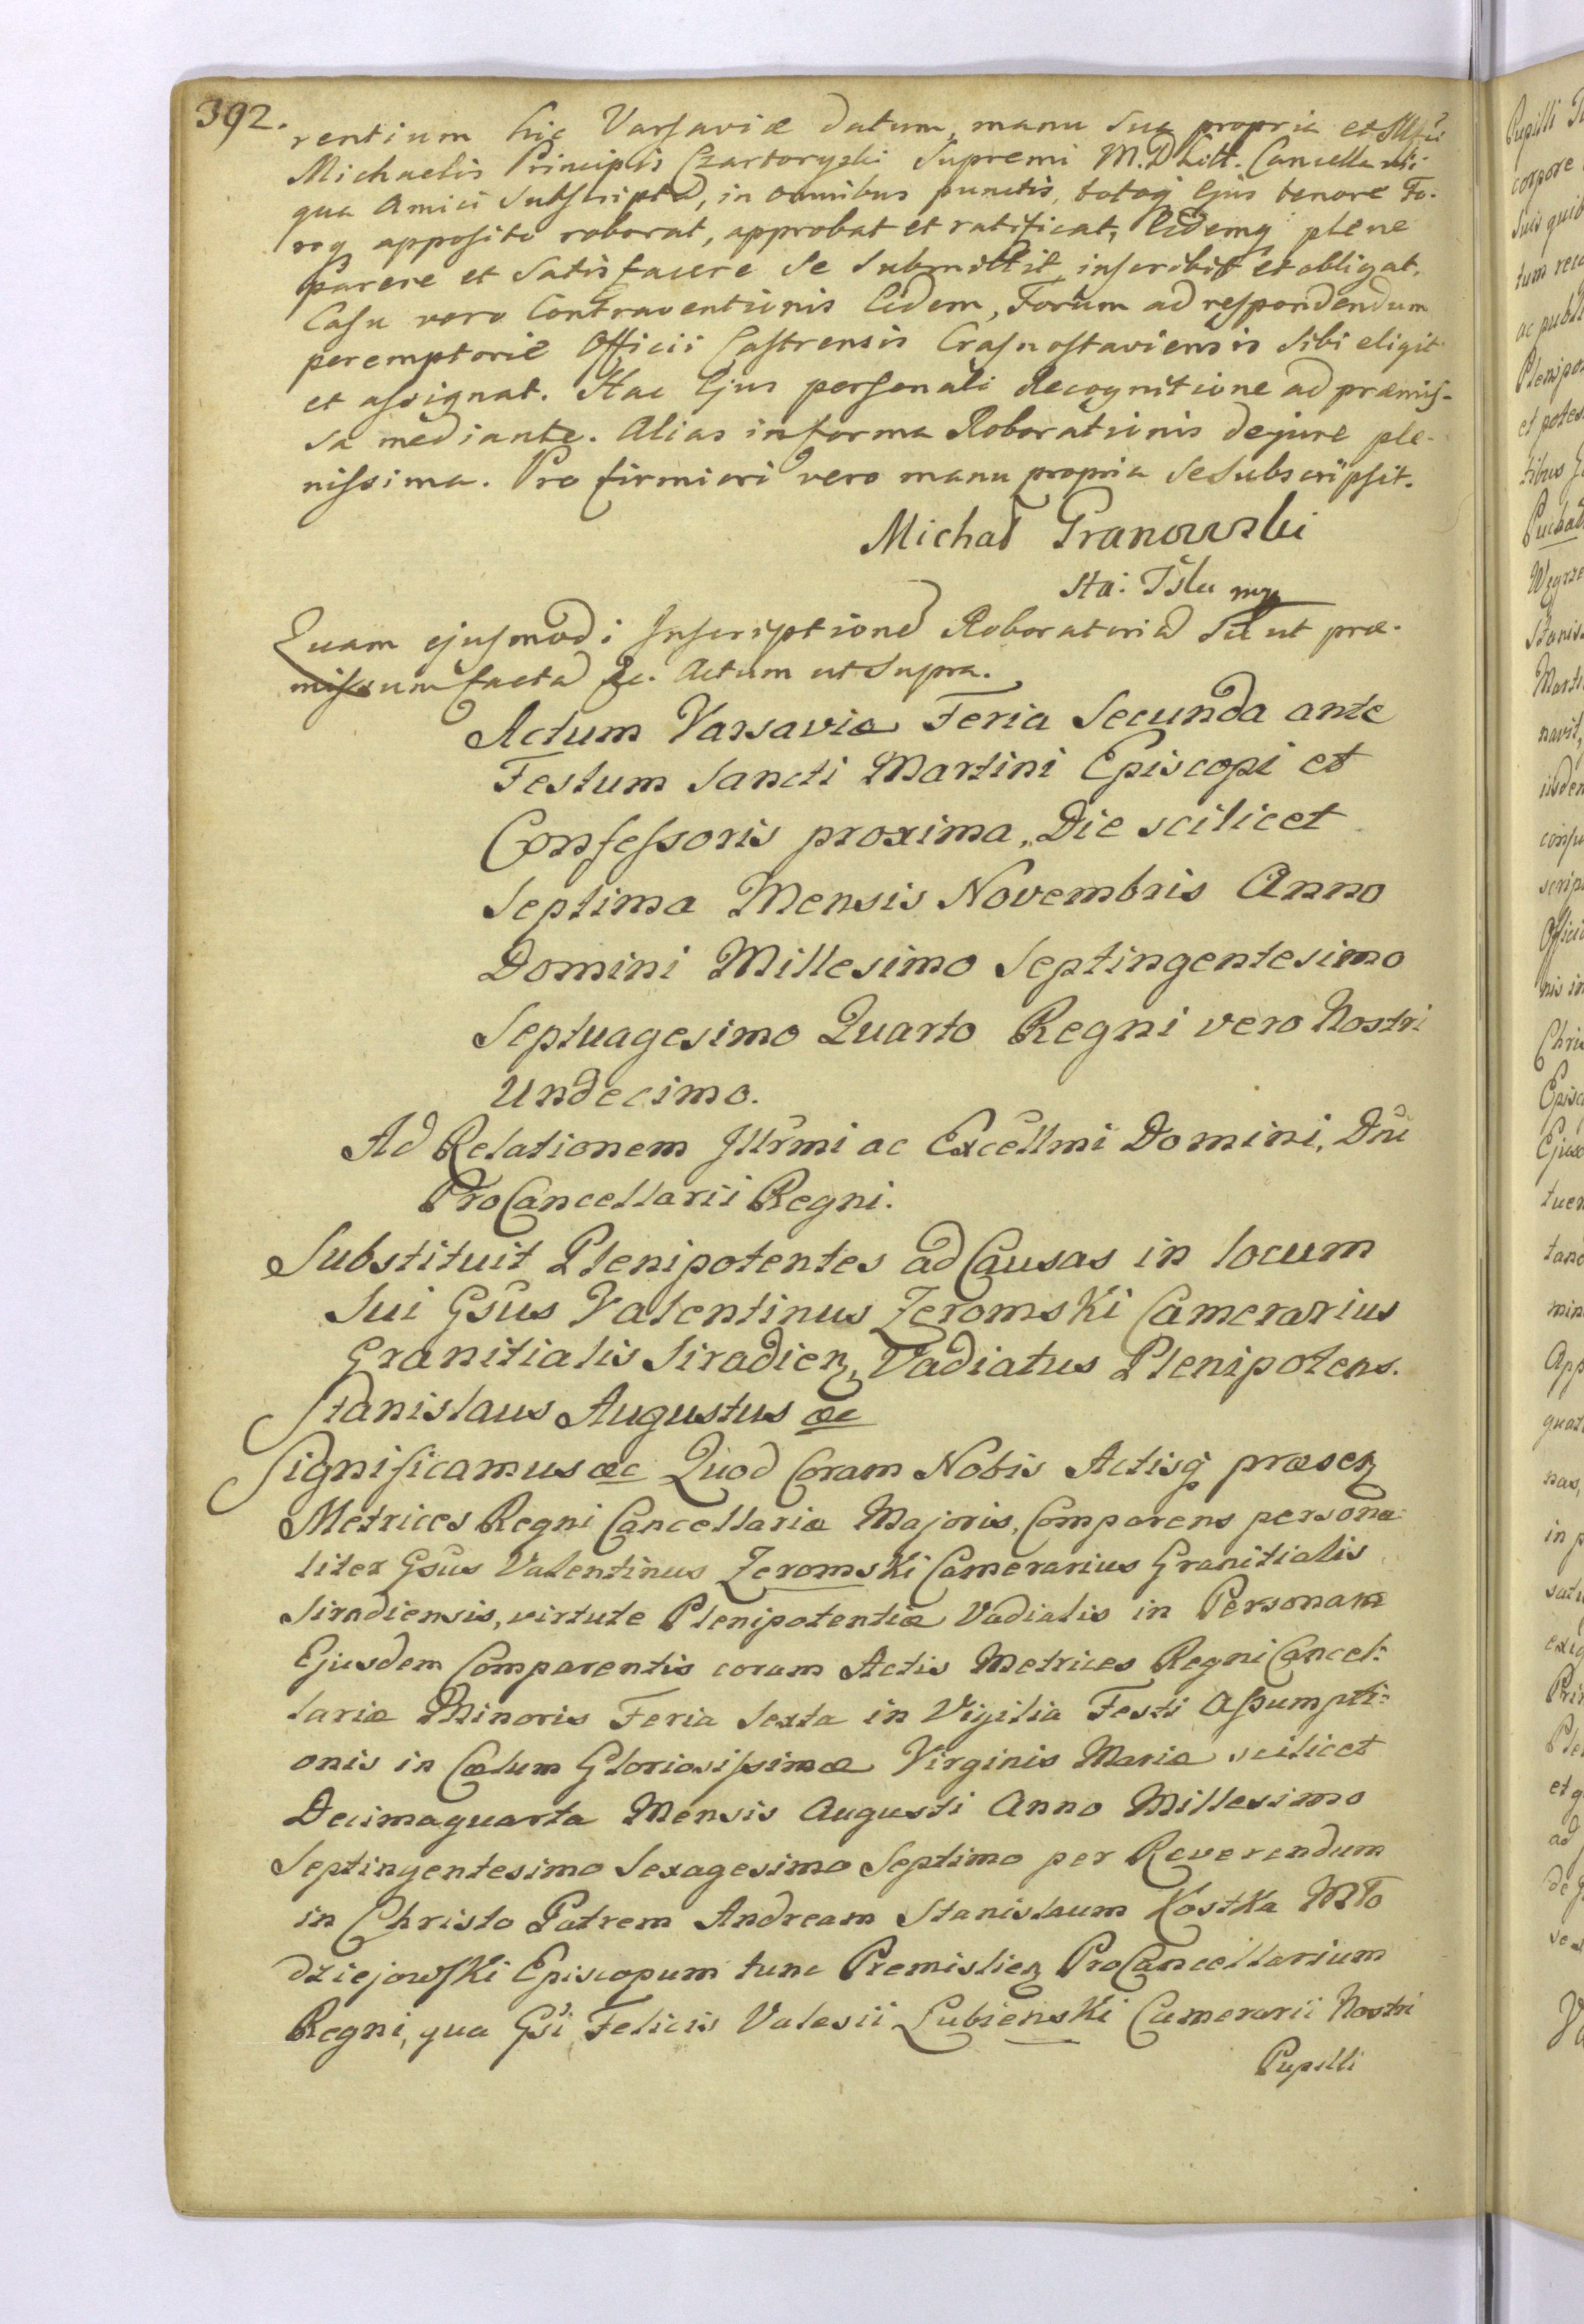 392.
rentium hic Varsaviæ datum, manu sua propria et
Michaelis Principis Czartoryski Supremi M. D. Litt. Cancellarii
qua Amici subscriptâ, in omnibus punctis, totoq ejus tenore Fo-
roq apposito roborat, approbat et ratificat, Eidemq plene
parere et satisfacere se submittit, inscribit et obligat.
Casu vero Contraventionis Eidem, Forum ad respondendum
peremptoriè Officii Castrensis Crasnostaviensis sibi eligit
et assignat. Hac Ejus personali Recognitione ad præmis-
sa mediante. Alias in forma Roborationis dejure ple-
nissima. Pro firmiori vero manu propria se subscripsit.
Michał Granowski
Sta: mp
Quam ejusmodi Inscriptione Roboratoria ut præ-
missum facta &c. Actum ut supra.
Actum Varsaviæ Feria Secunda ante
Festum Sancti Martini Episcopi et
Confessoris proxima, Die scilicet
Septima Mensis Novembris Anno
Domini Millesimo Septingentesimo
Septuagesimo Quarto Regni vero Nostri
Undecimo.
Ad Relationem Illrmi ac Excellmi Domini, Dni
ProCancellarii Regni.
Substituit Plenipotentes ad Causas in locum
Sui Gsus Valentinus Zeromski Camerarius
Granitialis Siradien, Vadiatus Plenipotens.
Stanislaus Augustus &c
Significamus &c Quod Coram Nobis Actisq præsen
Metrices Regni Cancellariæ Majoris, Comparens persona-
liter Gsus Valentinus Zeromski Camerarius Granitialis
Siradiensis, virtute Plenipotentiæ Vadialis in Personam
Ejusdem Comparentis coram Actis Metrices Regni Cancel-
lariæ Minoris Feria Sexta in Vigilia Festi Assumpti-
onis in Cœlum Gloriosissimæ Virginis Mariæ scilicet
Decimaquarta Mensis Augusti Anno Millesimo
Septingentesimo Sexagesimo Septimo per Reverendum
in Christo Patrem Andream Stanislaum Kostka Mło
dziejowski Episcopum tunc Premislien ProCancellarium
Regni, qua Gsi Felicis Valesii Lubienski Camerarii Nostri
Pupilli